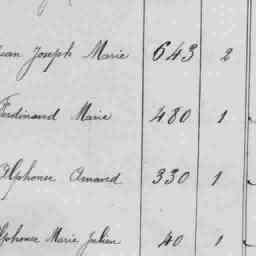 Jean Joseph Marie 643 2
Ferdinand Marie 480 1
Alphonse Amand 330 1
Alphonse Marie Julien 40 1